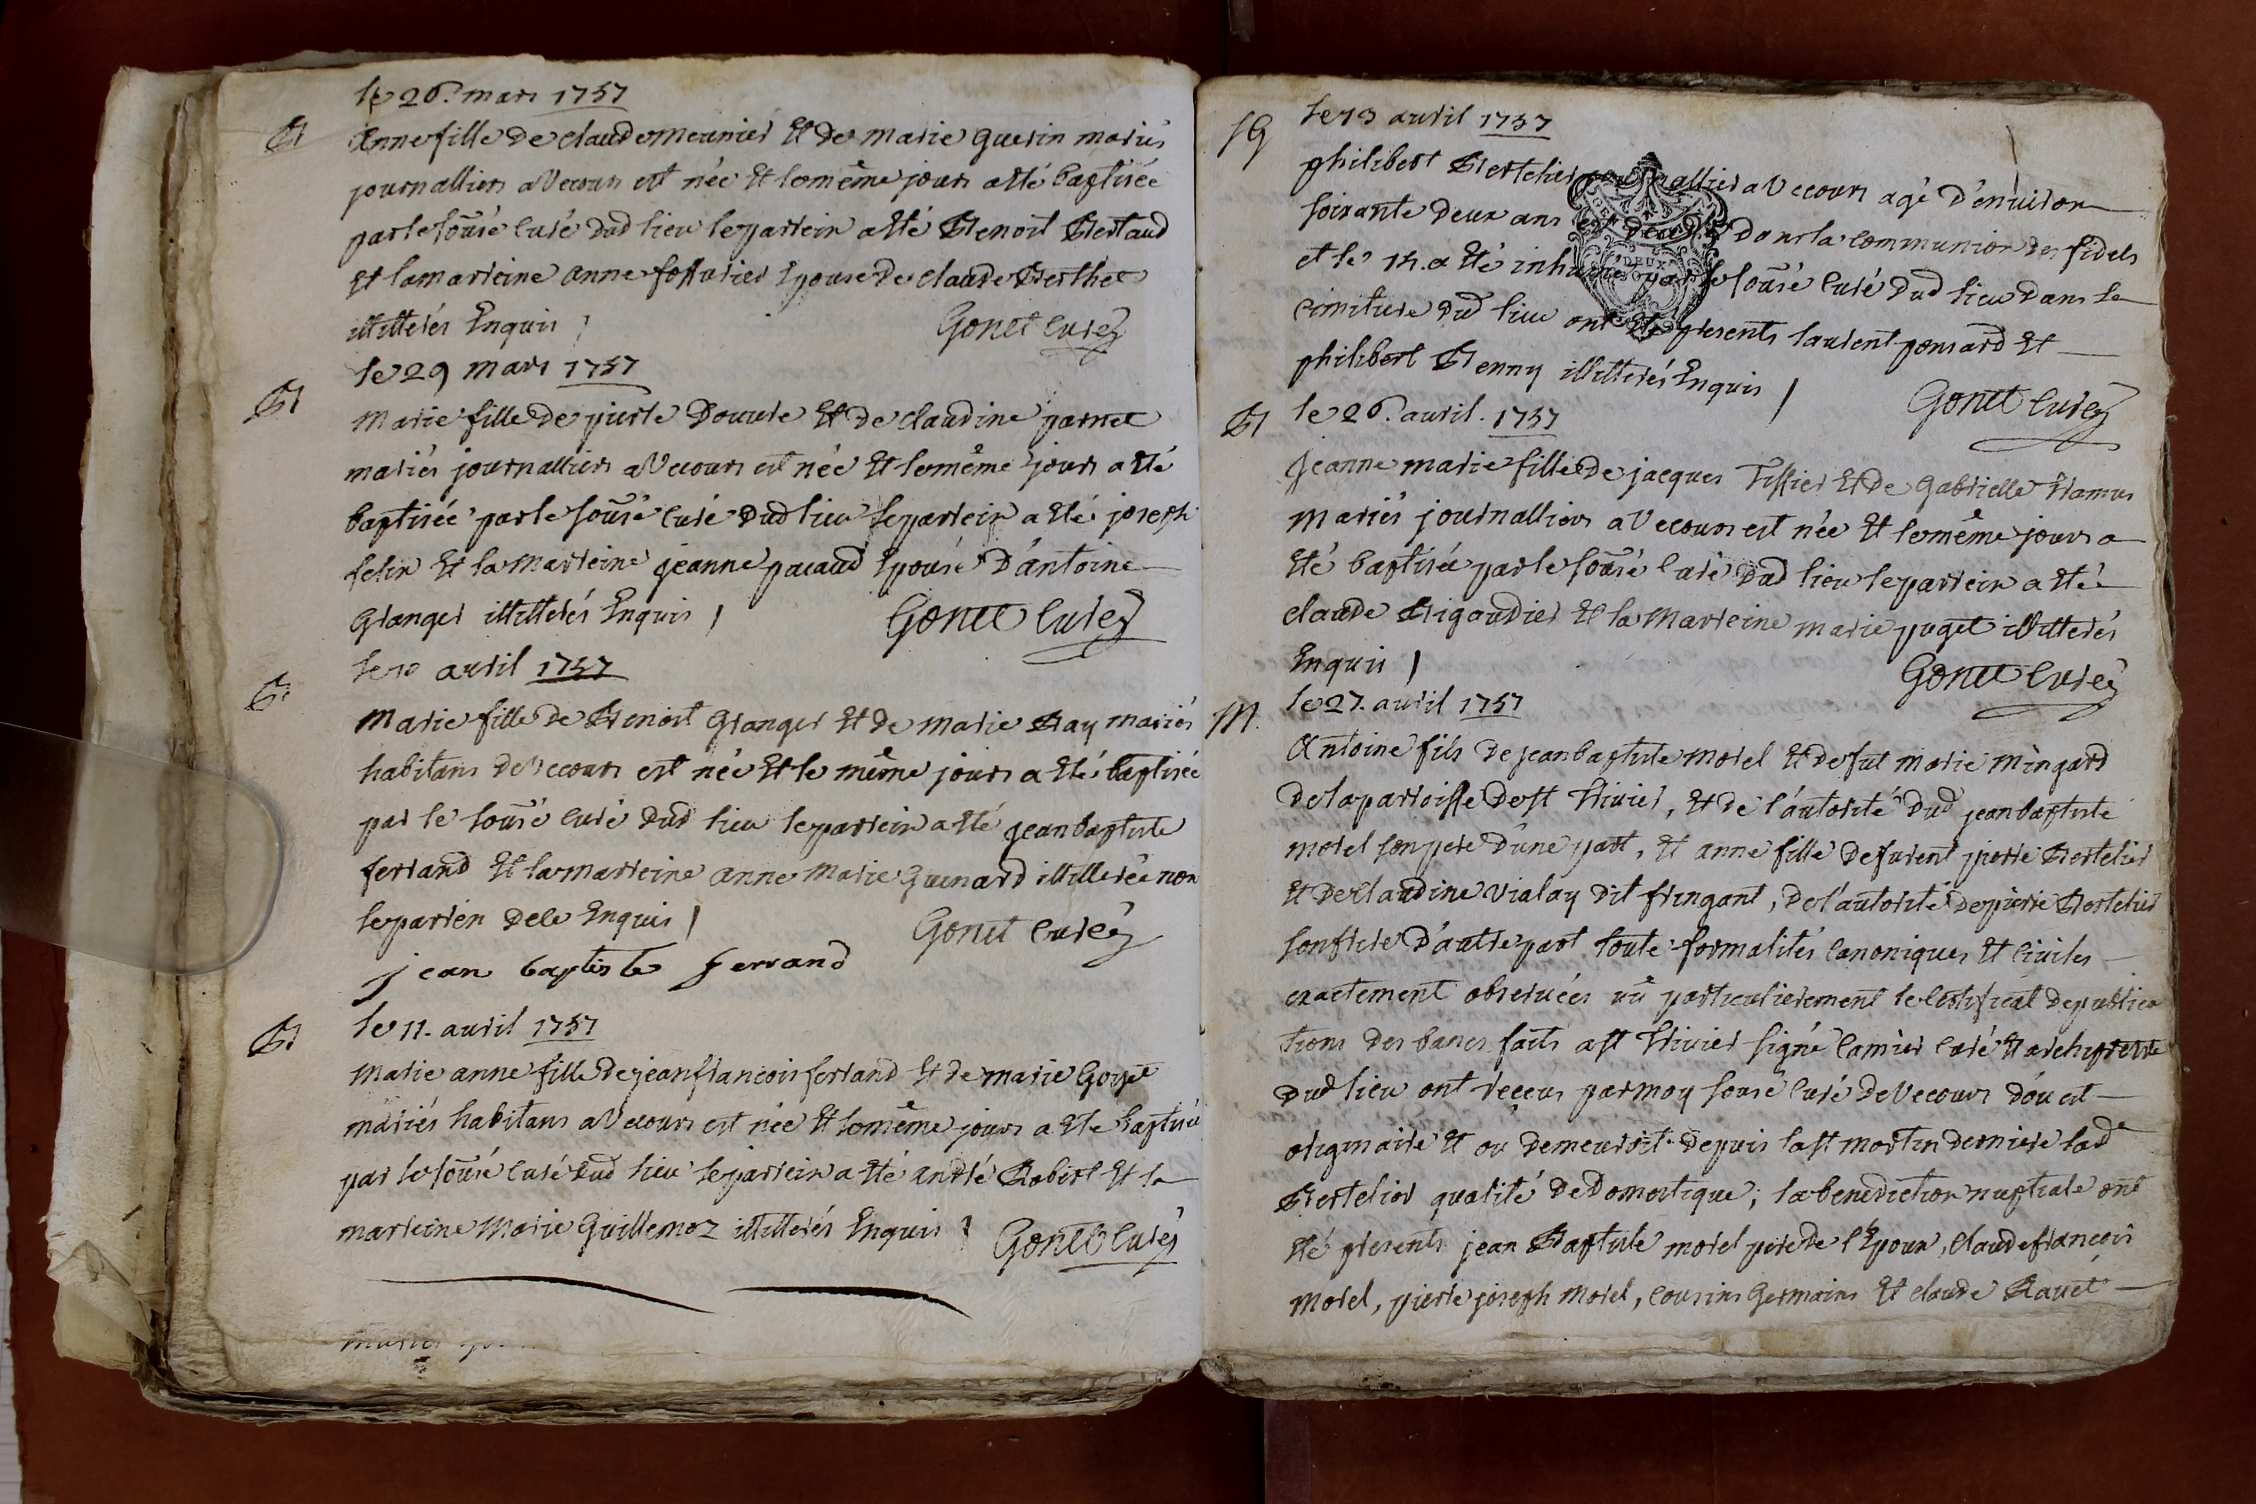 le 26. mars 1757
B
Anne fille de claude meunier Et de marie guerin mariés
journalliers a Vecours est née Et le même jours a eté baptisée
par le sousé Curé dud lieu le parrein a eté Benoit Bertaud
Et la marreine anne fossurier Epouse de claude Berthet
illitterés Enquis
Gonet Curé
le 29 mars 1757
B
marie fille de pierre Douvre Et de claudine parnet
mariés journalliers a Vecours est née Et le même jours a eté
baptisée par le sousé Curé dud lieu le parrein a eté joseph
felix Et la marreine jeanne pacaud Epouse D'antoine
Granger illitterés Enquis
Gonet Curé
le 10 avril 1757
B.
marie fille de Benoit Granger Et de marie Bay mariés
habitans de Vecours est née Et le même jours a eté baptisée
par le sousé Curé dud lieu le parrein a eté jean baptiste
ferrand Et la marreine anne marie guenard illitterée non
le parrien dele Enquis
Gonet Curé
jean baptiste ferrand
B.
le 11. avril 1757
marie anne fille de jean francois ferrand Et de marie Goyet
mariés habitans a Vecours est née Et le même jours a eté baptisée
par le sousé Curé dud lieu le parrein a eté andré Robert Et la
marreine marie Guillemoz illitterés Enquis
Gonet Curé
le 13 avril 1757
philibert Bertelier journallier a Vecours agé D'environ
soixante deux ans est decedé dans la communion des fidels
et le 14. a eté inhumé par le sousé Curé dud lieu dans le
cimiture dud lieu ont Eté presents laurent ponsard Et
philibert Benny illitterés Enquis
Gonet Curé
B
le 26. avril. 1757
jeanne marie fille de jacques Tissier Et de Gabrielle Hamus
mariés journalliers a Vecours est née Et le même jours a
Eté baptisée par le sousé Curé dud lieu le parrein a eté
claude Rigaudier Et la marreine marie puget illitterés
Enquis
Gonet Curé
M.
le 27. avril 1757
Antoine fils de jean baptiste morel Et de fut marie mingard
de la parroisse de st trivier, Et de l'autorité dud jean baptiste
morel son pere d'une part, Et anne fille de furent pierre Bertelier
Et de claudine vialay dit fringant, de l'autorité de pierre Bertelier
son frere d'autre part toute formalités Canoniques Et Civiles
exactement observées vû particulierement le Certificat de publica
tions des bancs faits a st trivier signé Camier Curé Et archiprêtre
dud lieu ont reçeus par moy sousé Curé de Vecours d'ou est
originaire Et ou demeuroit depuis la st martin derniere lade
Bertelier qualité de Domestique; la benediction nuptiale ont
Eté presents jean Baptiste morel pere de l'Epoux, Claude françois
morel, pierre joseph morel, Cousins Germains Et claude Ravet